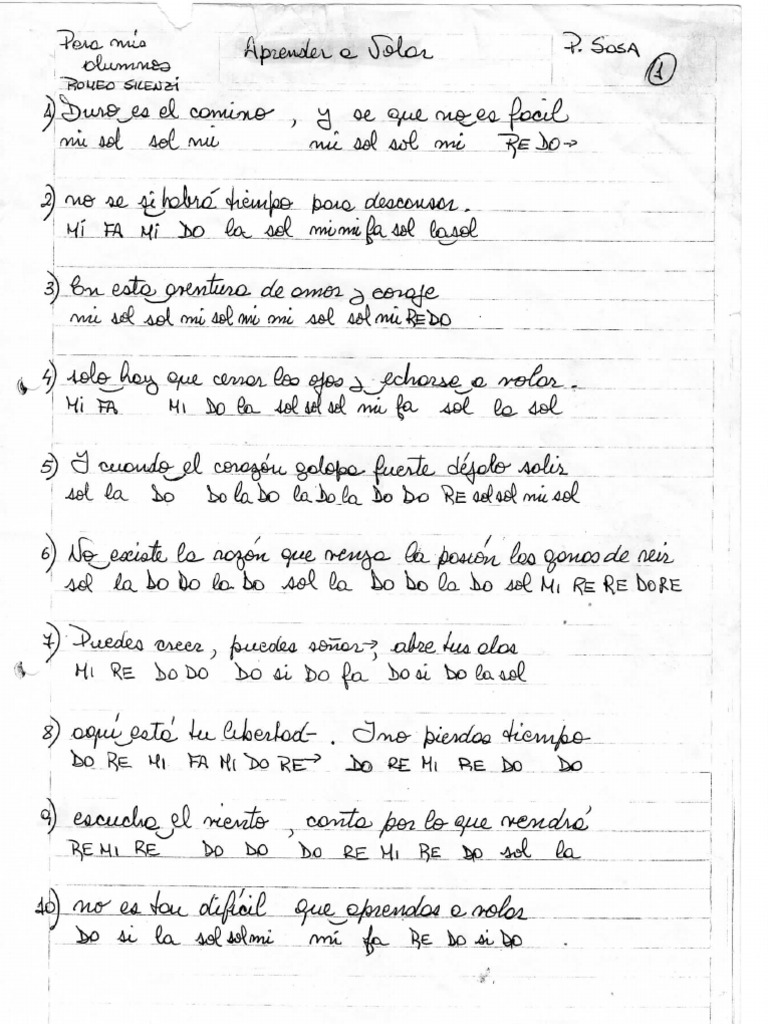 Para mis
alumnos
ROMEO SILENZI
Aprender a Volar
P. SOSA
1
1) Duro es el camino, y se que no es facil
mi sol sol mi mi sol sol mi RE DO→
2) no se si habrá tiempo para descansar.
MI FA MI DO la sol mi mi fa sol la sol
3) En esta aventura de amor y coraje
mi sol sol mi sol mi mi sol sol mi RE DO
4) solo hay que cerrar los ojos y echarse a volar.
MI FA MI DO la sol sol sol mi fa sol la sol
5) Y cuando el corazón galopa fuerte déjalo salir
sol la DO DO la DO la DO la DO DO RE sol sol mi sol
6) No existe la razón que venza la pasión las ganas de reir
sol la DO DO la DO sol la DO DO la DO sol MI RE RE DO RE
7) Puedes creer, puedes soñar→, abre tus alas
MI RE DO DO DO si DO fa DO si DO la sol
8) aquí está tu libertad-. Y no pierdas tiempo
DO RE MI FA MI DO RE→ DO RE MI RE DO DO
9) escucha el viento, canta por lo que vendrá
RE MI RE DO DO DO RE MI RE DO sol la
10) no es tan difícil que aprendas a volar
DO si la sol sol mi mi fa RE DO si DO .